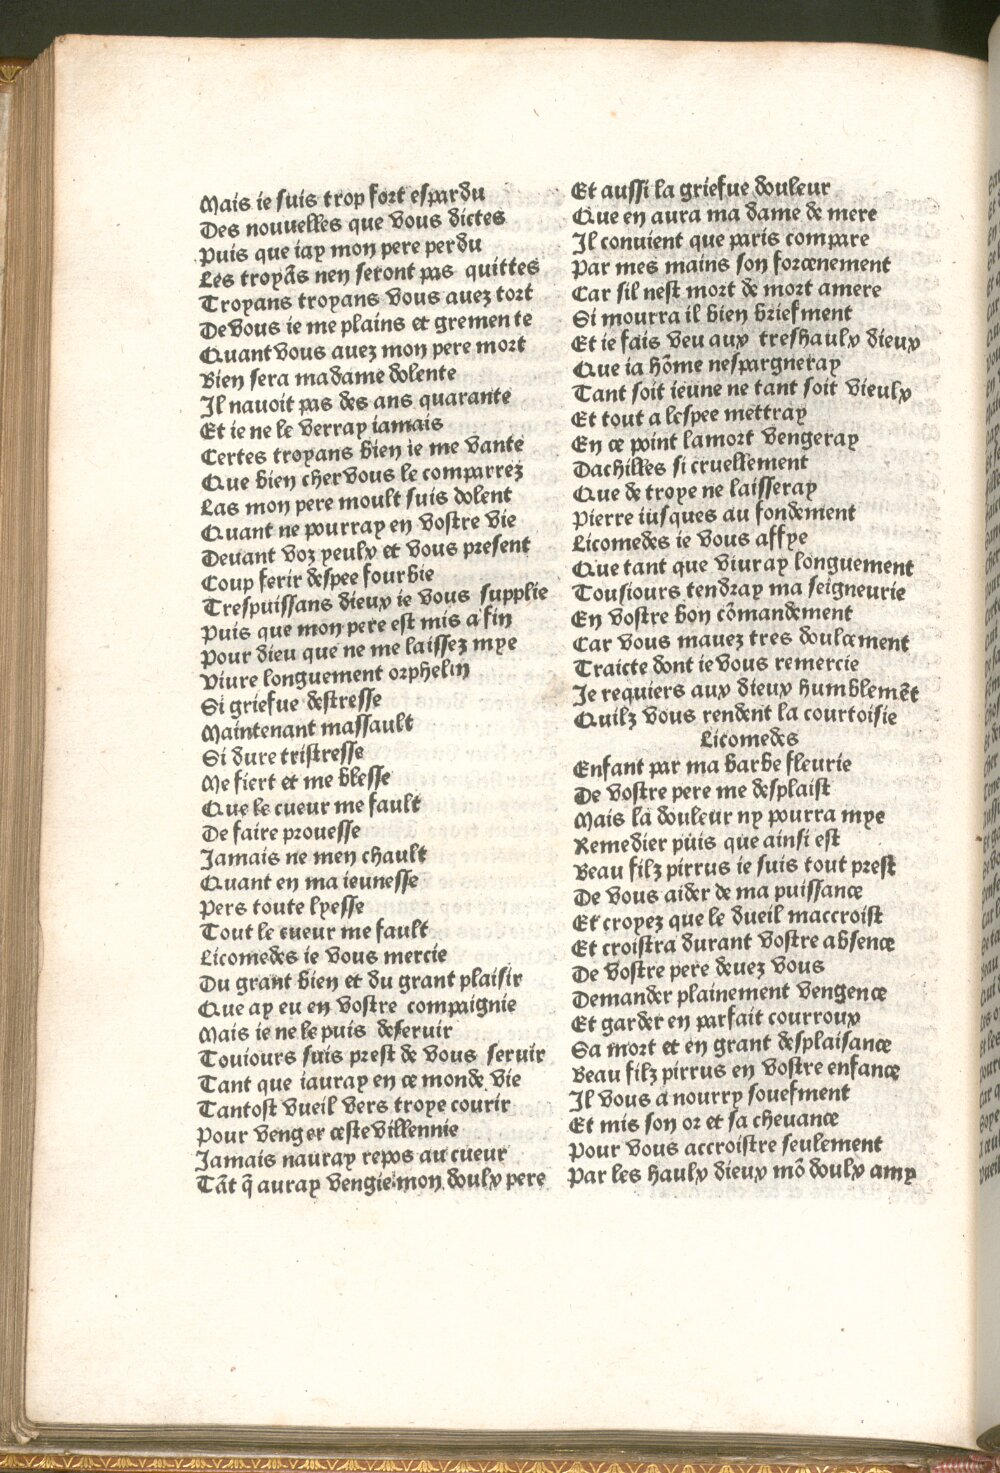 Mais ie suis trop fort espardu
Des nouuelles que vous dictes
Puis que iay mon pere perdu
Les troyãs nen seront pas quittes
Troyans troyans vous auez tort
De vous ie me plains et gremente
Quant vous auez mon pere mort
Bien sera ma dame dolente
Il nauoit pas des ans quarante
Et ie ne le verray iamais
Certes troyans bien ie me vante
Que bien cher vous le comparrez
Las mon pere moult suis dolent
Quant ne pourray en vostre vie
Deuant voz yeulx et vous present
Coup ferir despee fourbie
Trespuissans dieux ie vous supplie
Puis que mon pere est mis a fin
Pour dieu que ne me laissez mye
Viure longuement orphelin
Si griefue destresse
Maintenant massault
Si dure tristresse
Me fiert et me blesse
Que le cueur me fault
De faire prouesse
Jamais ne men chault
Quant en ma ieunesse
Pers toute lyesse
Tout le cueur me fault
Licomedes ie vous mercie
Du grant bien et du grant plaisir
Que ay eu en vostre compaignie
Mais ie ne le puis deseruir
Touiours suis prest de vous seruir
Tant que iauray en ce monde vie
Tantost vueil vers troye courir
Pour venger ceste villennie
Jamais nauray repos au cueur
Tãt q̃ auray vengie mon doulx pere
Et aussi la griefue douleur
Que en aura ma dame de mere
Il conuient que paris compare
Par mes mains son forcenement
Car sil nest mort de mort amere
Si mourra il bien briefment
Et ie fais veu aux treshaulx dieux
Que ia hõme nespargneray
Tant soit ieune ne tant soit vieulx
Et tout a lespee mettray
En ce point lamort vengeray
Dachilles si cruellement
Que de troye ne laisseray
Pierre iusques au fondement
Licomedes ie vous affye
Que tant que viuray longuement
Tousiours tendray ma seigneurie
En vostre bon cõmandement
Car vous mauez tres doulcement
Traicte dont ie vous remercie
Je requiers aux dieux humblemẽt
Quilz vous rendent la courtoisie
Licomedes
Enfant par ma barbe fleurie
De vostre pere me desplaist
Mais la douleur ny pourra mye
Remedier puis que ainsi est
Beau filz pirrus ie suis tout prest
De vous aider de ma puissance
Et croyez que le dueil maccroist
Et croistra durant vostre absence
De vostre pere deuez vous
Demander plainement vengence
Et garder en parfait courroux
Sa mort et en grant desplaisance
Beau filz pirrus en vostre enfance
Il vous a nourry souefment
Et mis son or et sa cheuance
Pour vous accroistre seulement
Par les haulx dieux mõ doulx amy